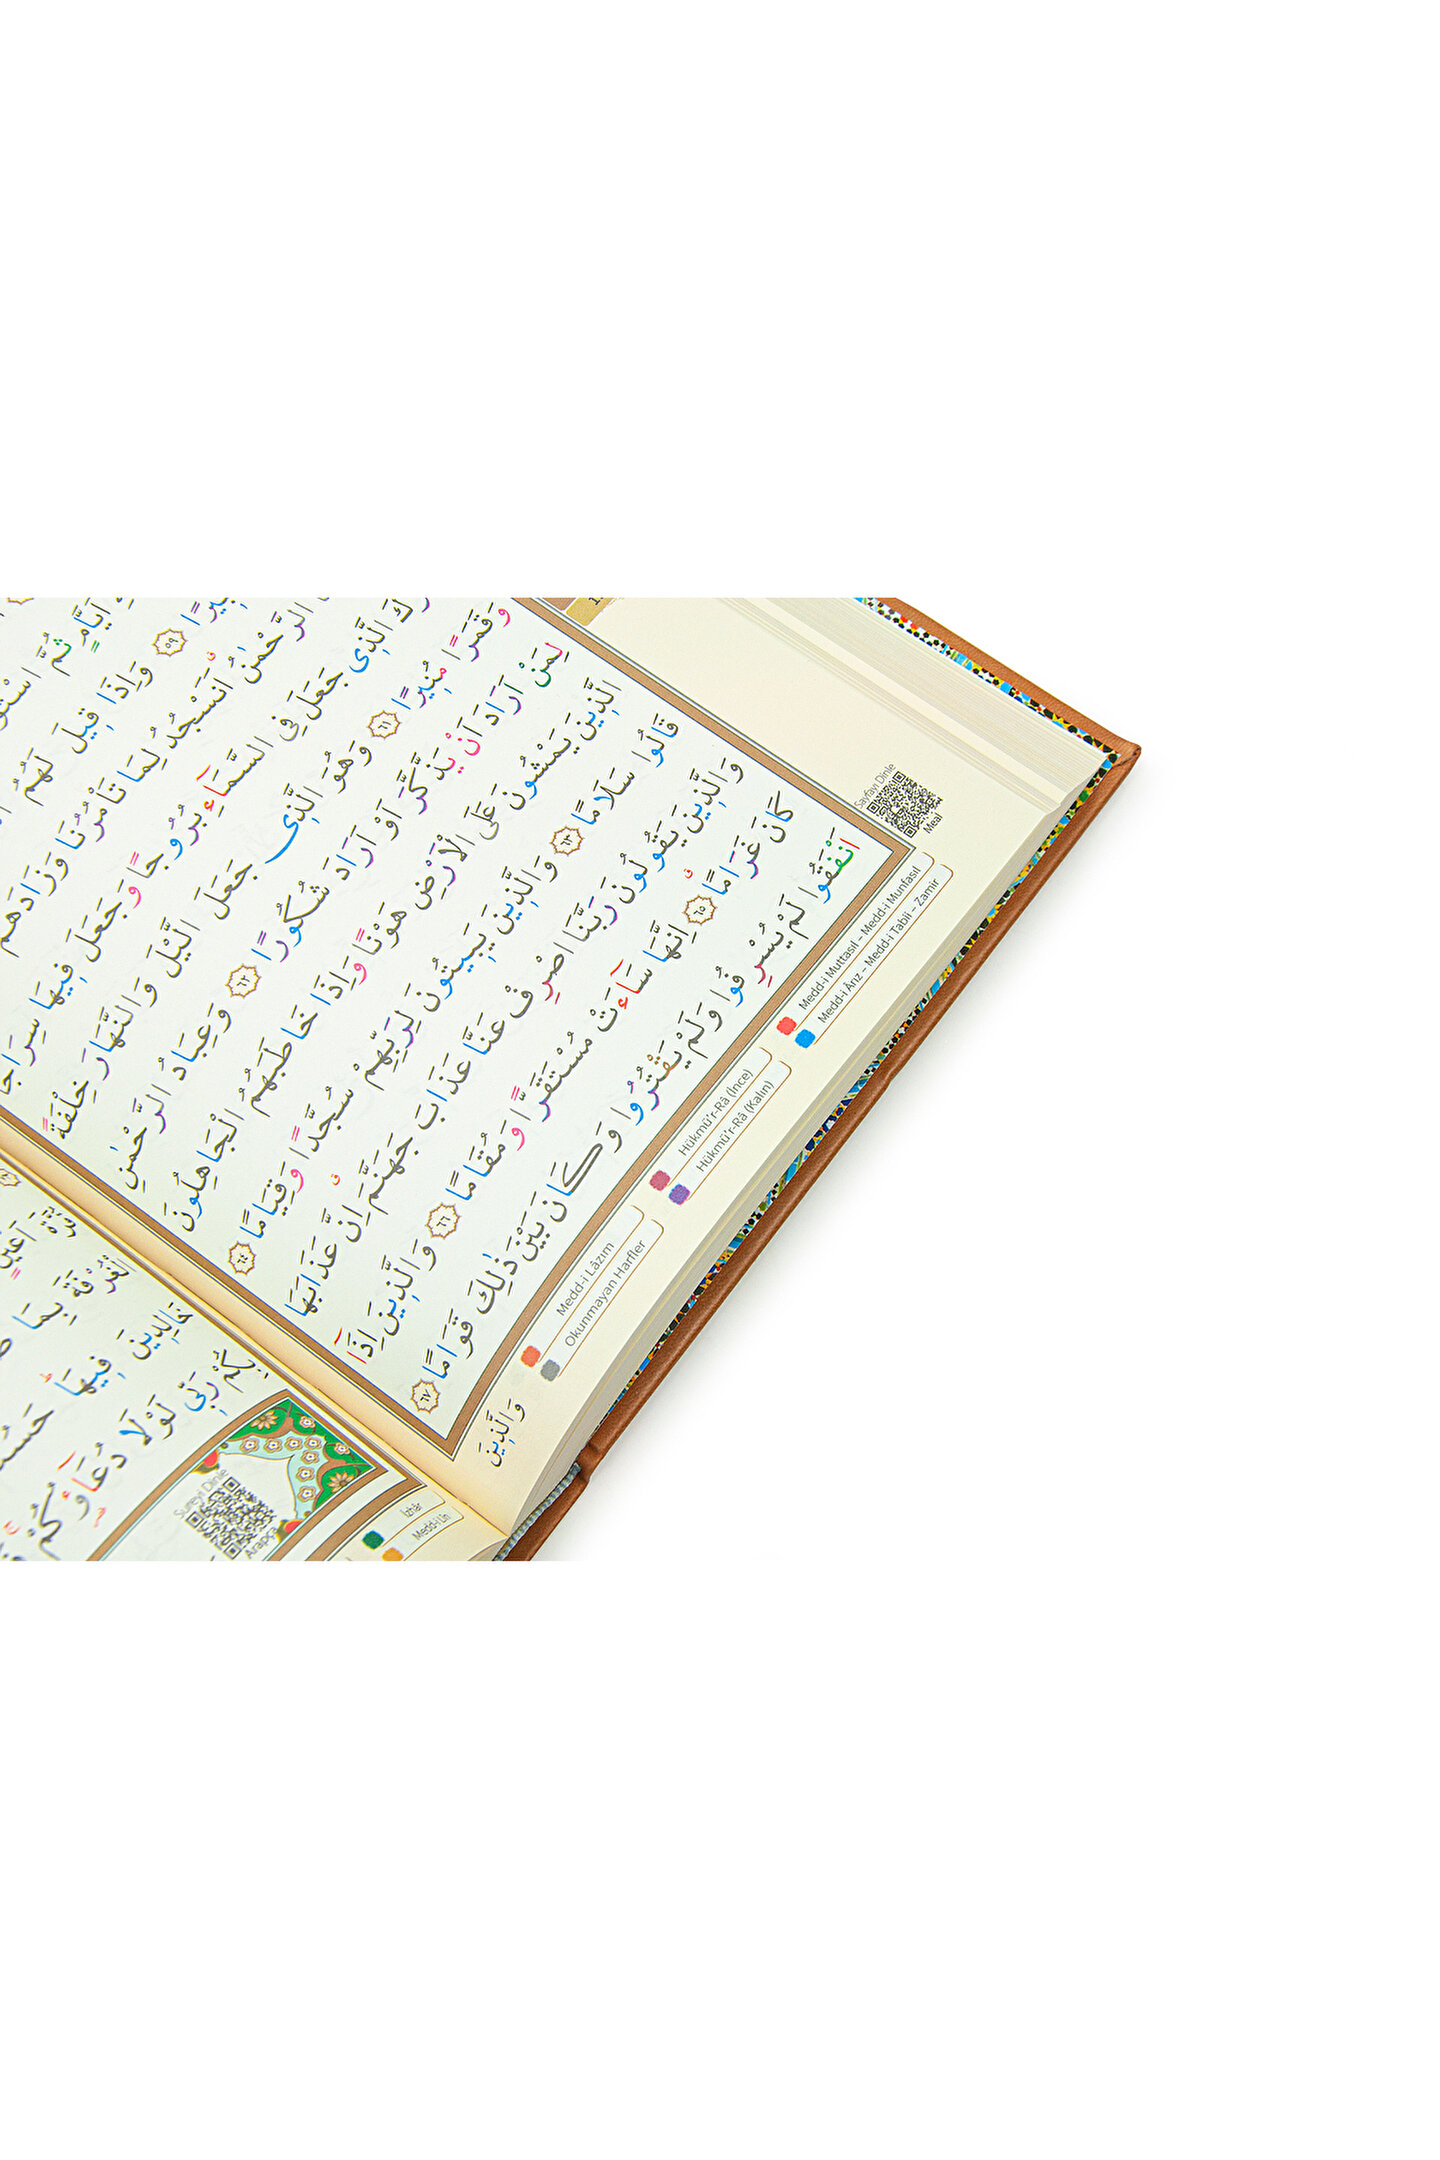 اَيَّامٍ ثُمَّ اسْتَوٰى
﴿٥٩﴾ وَاِذَا قِيلَ لَهُمُ
الرَّحْمٰنُ اَنَسْجُدُ لِمَا تَأْمُرُنَا وَزَادَهُمْ
الَّذِى جَعَلَ فِى السَّمَٓاءِ بُرُوجًا وَجَعَلَ فِيهَا سِرَاجًا
وَقَمَرًا مُنِيرًا ﴿٦١﴾ وَهُوَ الَّذِى جَعَلَ الَّيْلَ وَالنَّهَارَ خِلْفَةً
لِمَنْ اَرَادَ اَنْ يَذَّكَّرَ اَوْ اَرَادَ شُكُورًا ﴿٦٢﴾ وَعِبَادُ الرَّحْمٰنِ
الَّذِينَ يَمْشُونَ عَلَى الْاَرْضِ هَوْنًا وَاِذَا خَاطَبَهُمُ الْجَاهِلُونَ
قَالُوا سَلَامًا ﴿٦٣﴾ وَالَّذِينَ يَبِيتُونَ لِرَبِّهِمْ سُجَّدًا وَقِيَامًا ﴿٦٤﴾
وَالَّذِينَ يَقُولُونَ رَبَّنَا اصْرِفْ عَنَّا عَذَابَ جَهَنَّمَ اِنَّ عَذَابَهَا
كَانَ غَرَامًا ﴿٦٥﴾ اِنَّهَا سَٓاءَتْ مُسْتَقَرًّا وَمُقَامًا ﴿٦٦﴾ وَالَّذِينَ اِذَٓا
اَنْفَقُوا لَمْ يُسْرِفُوا وَلَمْ يَقْتُرُوا وَكَانَ بَيْنَ ذٰلِكَ قَوَامًا ﴿٦٧﴾
وَالَّذِينَ
Sayfayı Dinle
Meal
Medd-i Muttasıl – Medd-i Munfasıl
Medd-i Ârız – Medd-i Tabii – Zamir
Hükmü'r-Râ (İnce)
Hükmü'r-Râ (Kalın)
Medd-i Lâzım
Okunmayan Harfler
الْغُرْفَةَ بِمَا
خَالِدِينَ فِيهَا حَسُنَتْ
بِكُمْ رَبِّى لَوْلَا دُعَٓاؤُكُمْ
Sureyi Dinle
Arapça
İzhâr
Medd-i Lîn